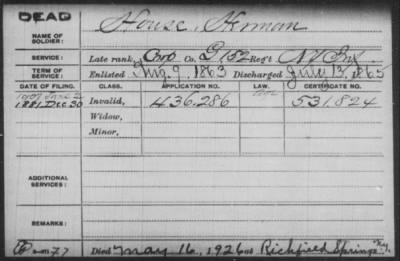 DEAD
House, Herman
NAME OF SOLDIER:
SERVICE: Late rank, Corp Co. G 152 Reg't N.Y. Inf.
TERM OF SERVICE: Enlisted Aug. 9, 1863 Discharged July 13, 1865
DATE OF FILING. CLASS. APPLICATION NO. LAW. CERTIFICATE NO.
1881 Dec 30 Invalid, 436.286 531.824
Widow,
Minor,
ADDITIONAL SERVICES:
REMARKS:
Died May 16, 1926 at Richfield Springs N.Y.